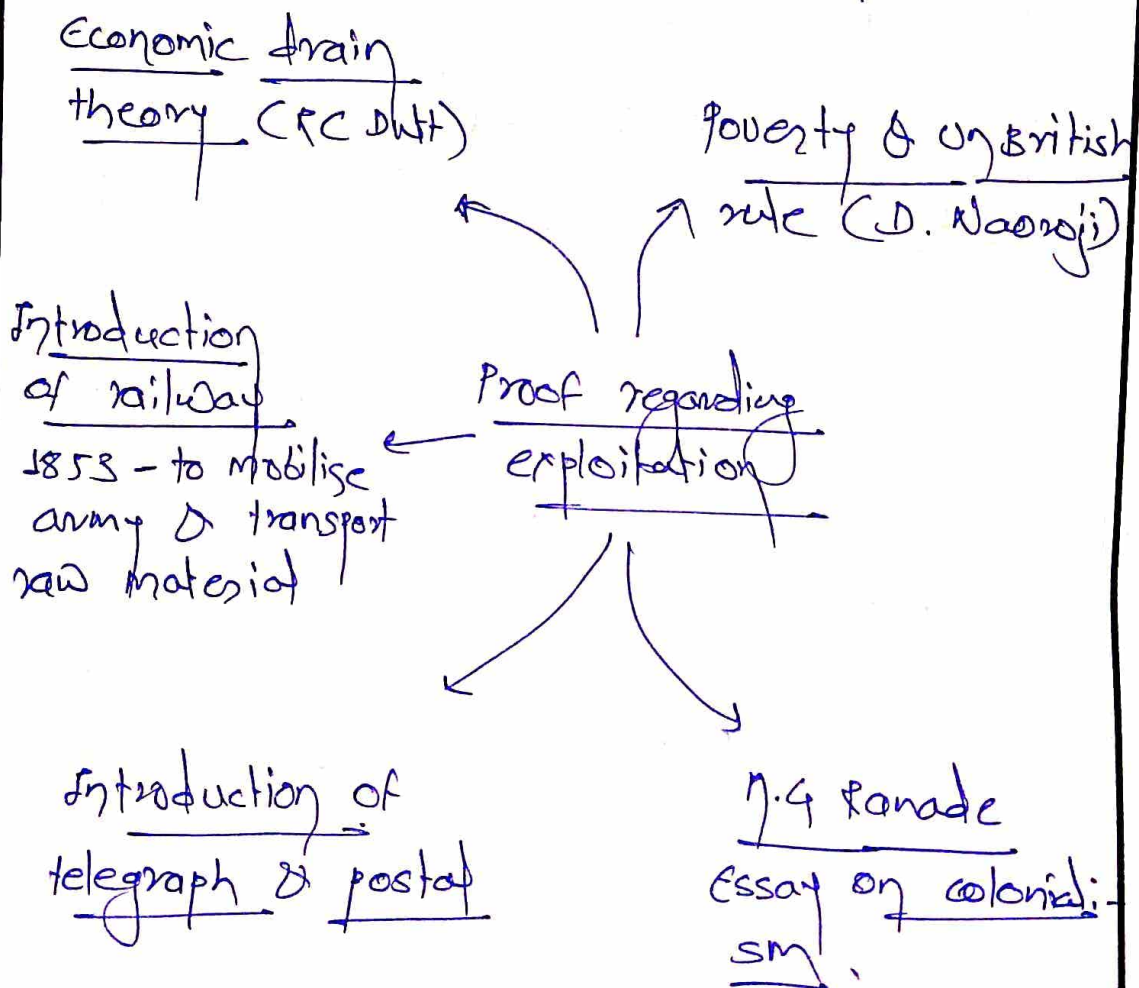 Economic drain
theory (RC Dutt)
Poverty & UnBritish
rule (D. Naoroji)
Introduction
of railway
1853 - to mobilise
army & transport
raw material
Proof regarding
exploitation
Introduction of
telegraph & postal
M.G Ranade
Essay on coloniali-
sm.